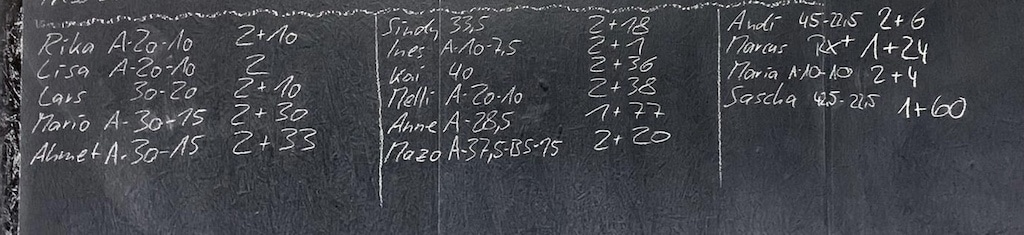 Rika A-20-10 2+10
Lisa A-20-10 2
Lars 30-20 2+10
Mario A-30-15 2+30
Ahmet A-30-15 2+33
Sindy 33,5 2+18
Ines A-10-7,5 2+1
Kai 40 2+36
Melli A-20-10 2+38
Anne A-28,5 1+77
Mazo A-37,5-B5-15 2+20
Andi 45-22,5 2+6
Marcus Rx+ 1+24
Maria A-10-10 2+4
Sascha 42,5-22,5 1+60